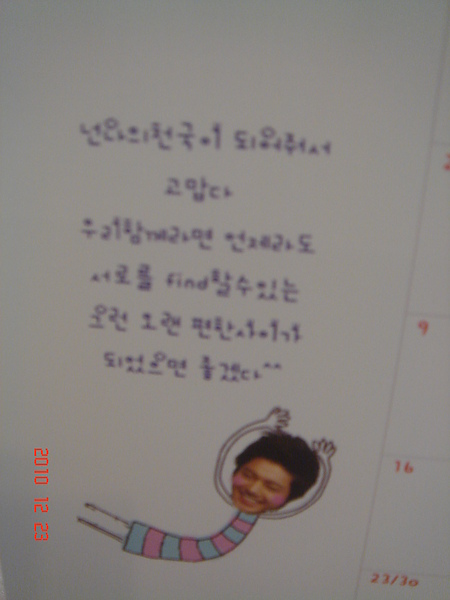 넌나의천국이 되어줘서
고맙다
우리함께라면 언제라도
서로를 find할수있는
오랜 편한사이가
되었으면 좋겠다^^
9
16
23/30
2010 12 23